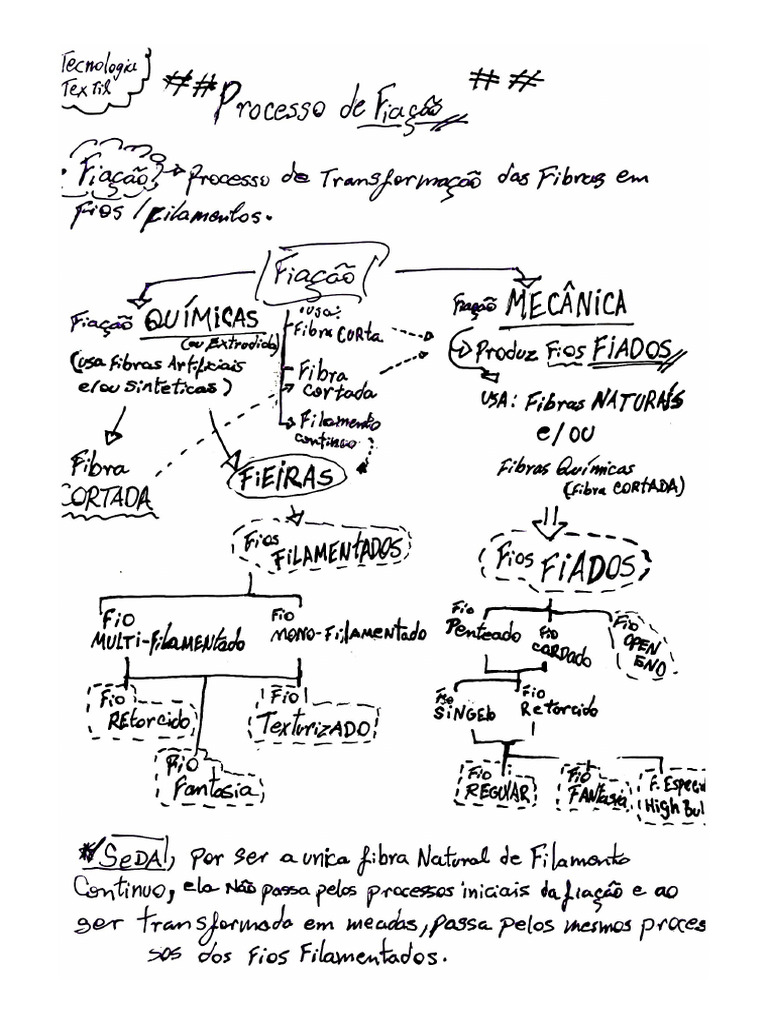 Tecnologia
Textil
## Processo de Fiação ## 
Fiação → Processo de Transformação das Fibras em
Fios / Filamentos.
Fiação
Fiação QUÍMICAS
(ou Extrodida)
(usa Fibras Artificiais
e/ou Sinteticas)
Fibra
CORTADA
usa:
Fibra CURTA
Fibra
cortada
Filamento
continuo
FIEIRAS
Fiação MECÂNICA
Produz Fios FIADOS
USA: Fibras NATURAIS
e/ou
Fibras Químicas
(Fibra CORTADA)
Fios
FILAMENTADOS
Fio
MULTI-Filamentado
Fio
MONO-Filamentado
Fio
REtorcido
Fio
TexturizADO
Fio
Fantasia
Fios FIADOS
Fio
Penteado
Fio
CARDado
Fio
OPEN
END
Fio
SiNGElo
Fio
Retorcido
Fio
REGULAR
Fio
FANtasia
F. Especi
High Bul
# SeDA, por ser a unica fibra Natural de Filamento
Continuo, ela não passa pelos processos iniciais da fiação e ao
ser transformada em meadas, passa pelos mesmos proces
sos dos Fios Filamentados.